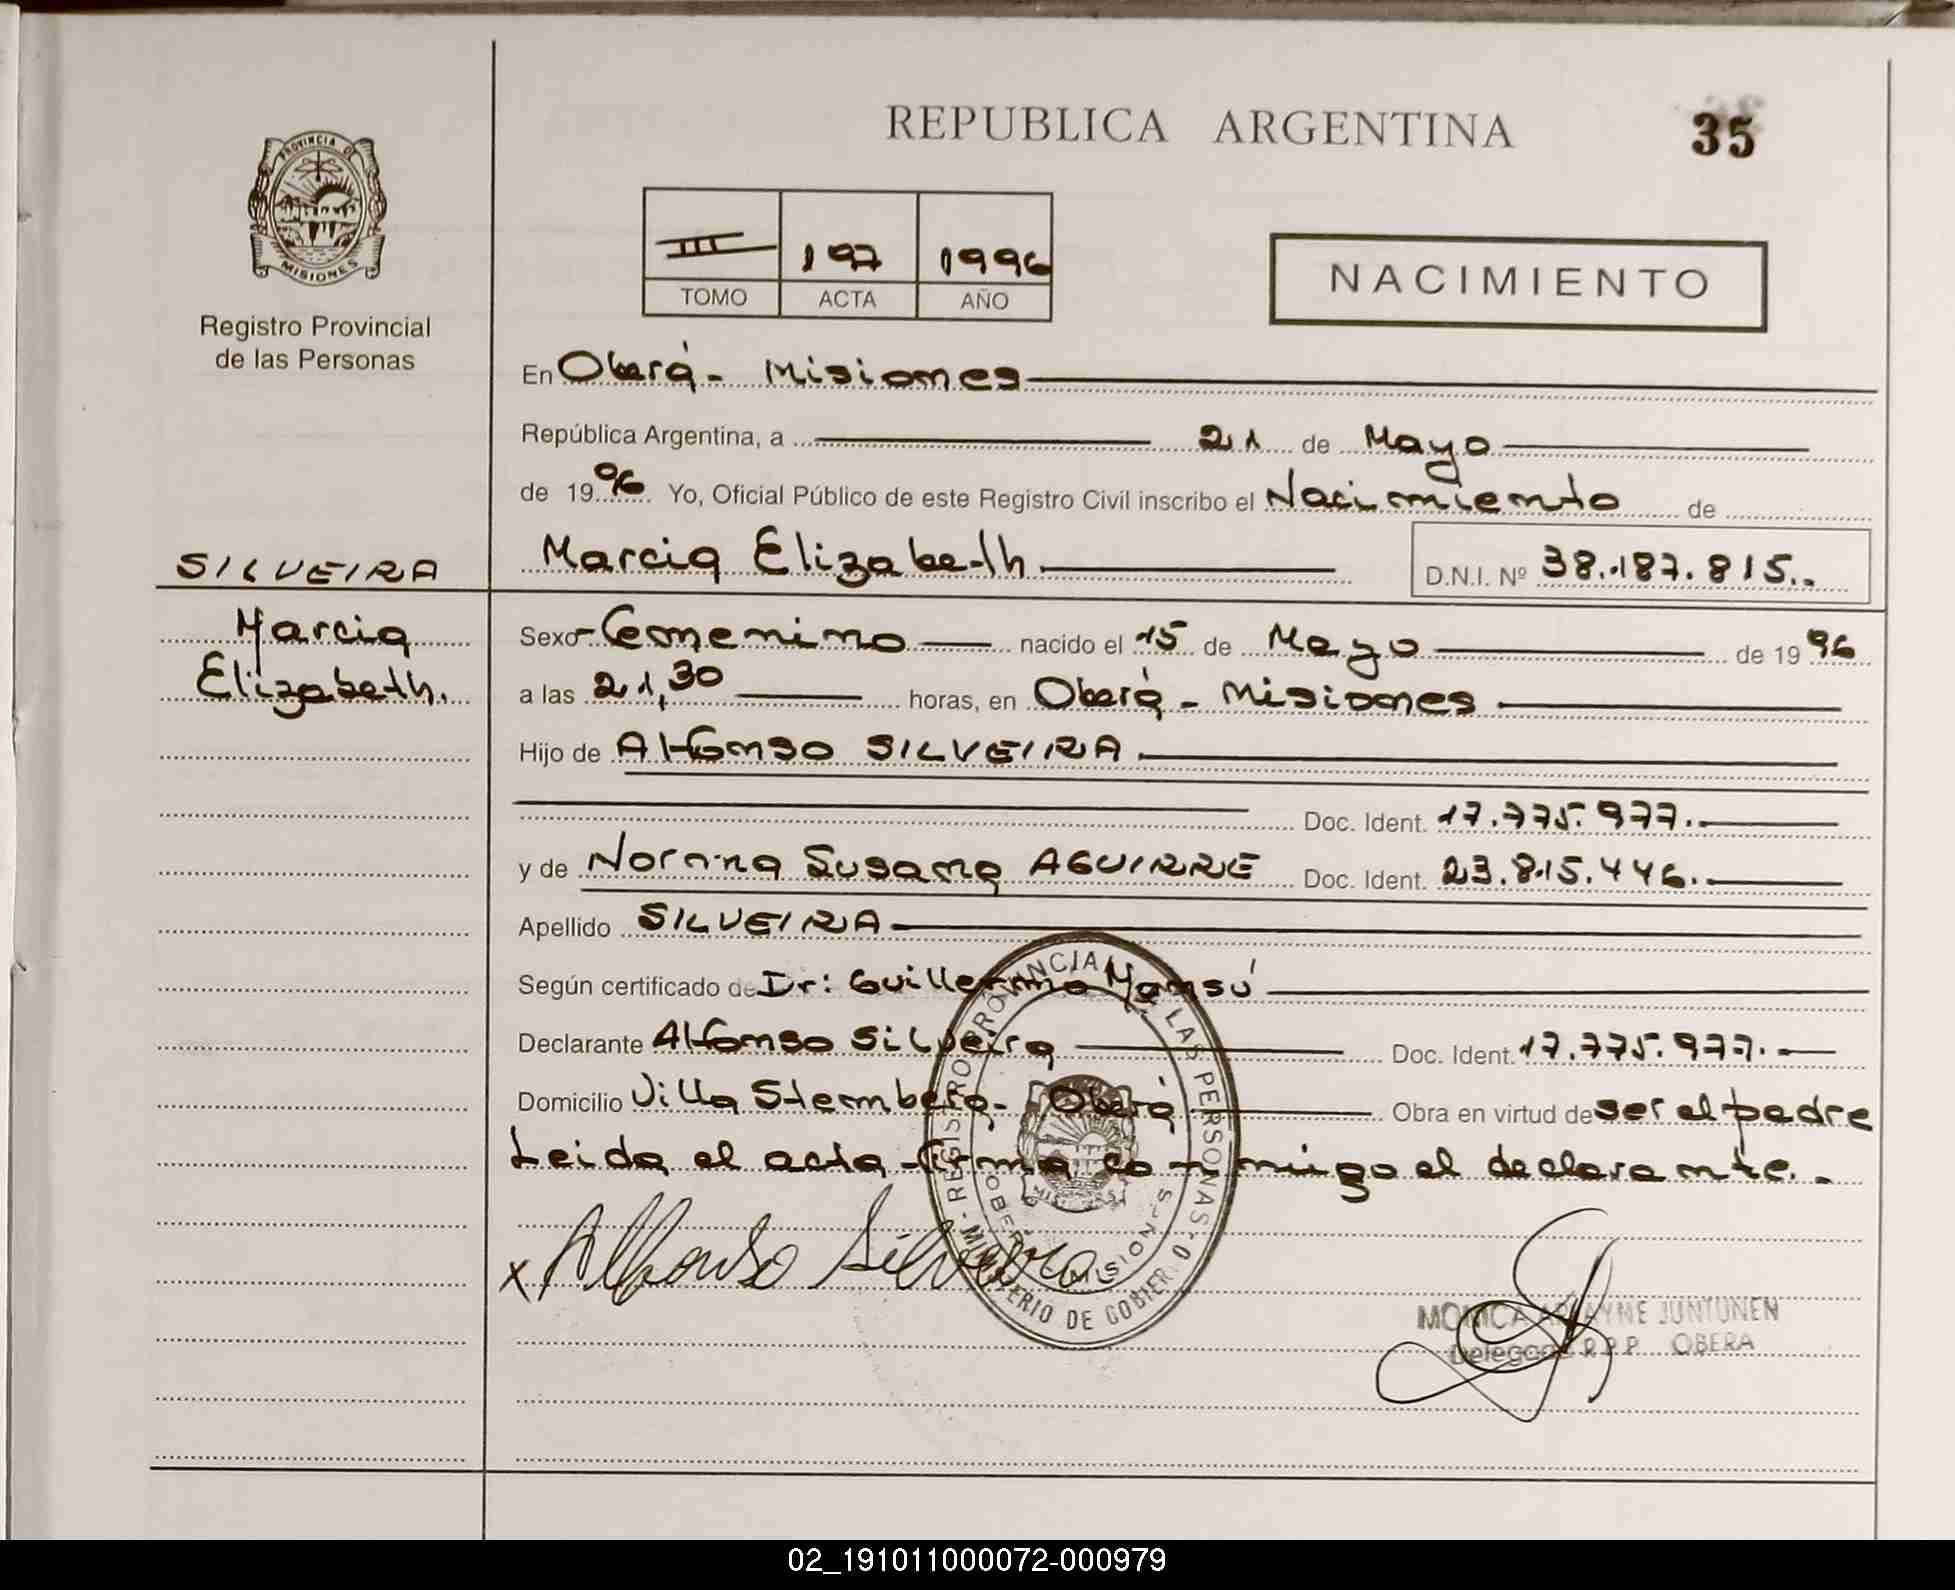 REPUBLICA ARGENTINA
35
PROVINCIA DE
MISIONES
Registro Provincial
de las Personas
III 197 1996
TOMO ACTA AÑO
NACIMIENTO
En Oberá - Misiones
República Argentina, a 21 de Mayo
de 1996 Yo, Oficial Público de este Registro Civil inscribo el Nacimiento de
SILVEIRA
Marcia Elizabeth
D.N.I. Nº 38.187.815.
Marcia
Elizabeth.
Sexo Femenino nacido el 15 de Mayo de 1996
a las 21,30 horas, en Oberá - Misiones
Hijo de Alfonso SILVEIRA
Doc. Ident. 17.775.977.
y de Norma Susana AGUIRRE Doc. Ident. 23.815.446.
Apellido SILVEIRA
Según certificado de Dr: Guillermo
Declarante Alfonso Silveira Doc. Ident. 17.775.977.
Domicilio Villa Stemberg - Oberá Obra en virtud de ser el padre
Leida el acta firma conmigo el declarante. -
x Alfonso Silveira
REGISTRO PROVINCIAL DE LAS PERSONAS
MINISTERIO DE GOBIERNO
OBERA MISIONES
MONICA JUNTUNEN
R.P.P. OBERA
02_191011000072-000979